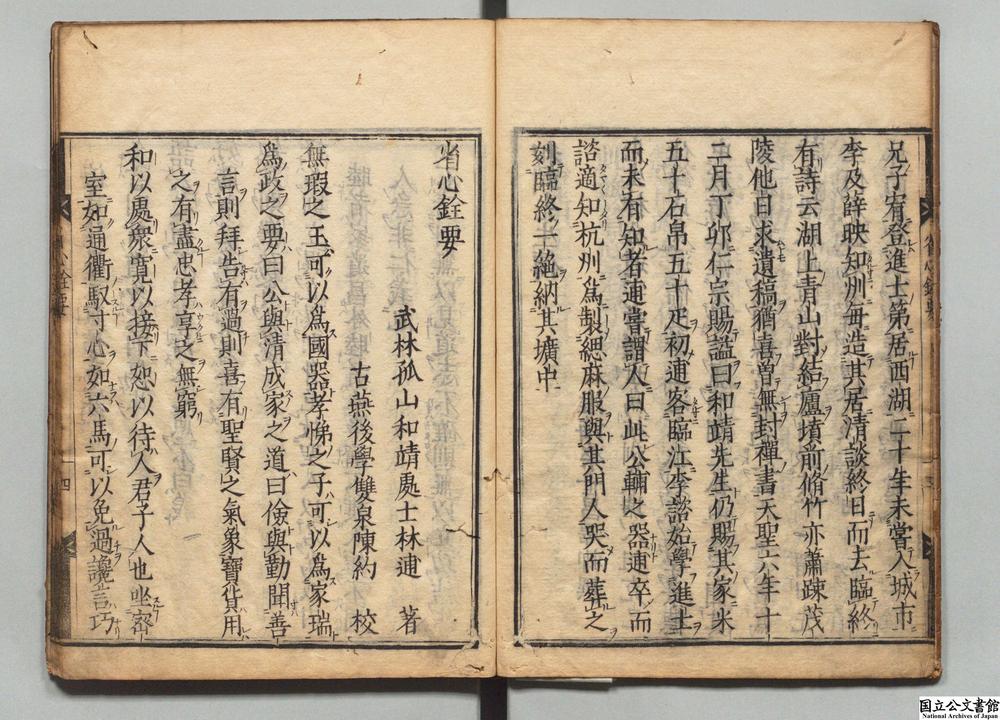 兄子宥登進士第居西湖二十年未嘗入城市
李及薛映知州毎造其居清談終日而去臨終
有詩云湖上青山對結廬墳前脩竹亦蕭踈茂
陵他日求遺稿猶喜曽無封禪書天聖六年十
二月丁卯仁宗賜謚曰和靖先生仍賜其家米
五十石帛五十疋初逋客臨江李諮始學進士
而未有知者逋嘗謂人曰此公輔之器逋卒而
諮適知杭州爲製緦麻服與其門人哭而葬之
刻臨終一絶納其壙中
省心銓要
武林孤山和靖處士林逋 著
古燕後學雙泉陳約 校
無瑕之玉可以爲國器孝悌之子可以爲家瑞
爲政之要曰公與清成家之道曰儉與勤聞善
言則拜告有過則喜有聖賢之氣象寶貨用
之有盡忠孝享之無窮
和以處衆寛以接下恕以待人君子人也坐密
室如通衢馭寸心如六馬可以免過讒言巧
四
国立公文書館
National Archives of Japan